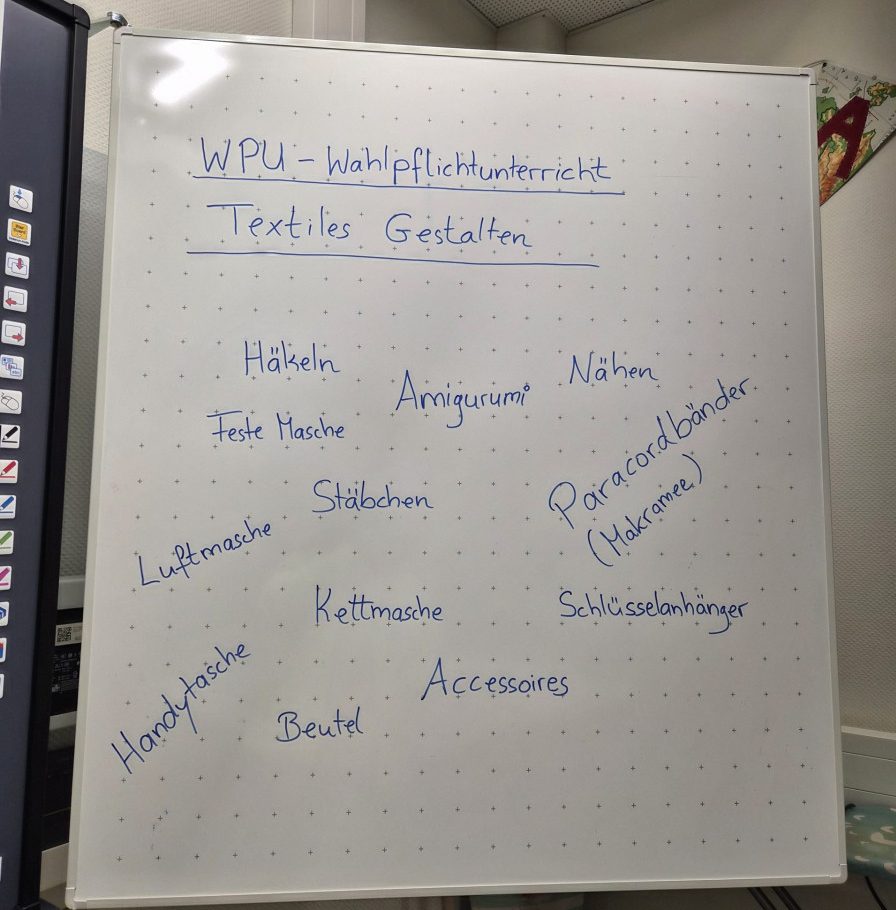 WPU - Wahlpflichtunterricht
Textiles Gestalten
Häkeln
Amigurumi
Nähen
Feste Masche
Paracordbänder
(Makramee)
Stäbchen
Luftmasche
Kettmasche
Schlüsselanhänger
Handytasche
Accessoires
Beutel
A